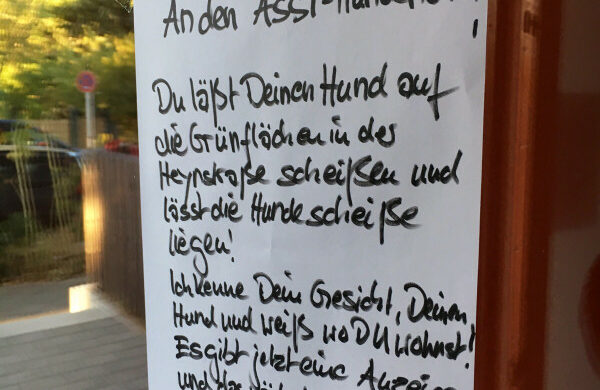 An den Assi-Hunde
!
Du läßt Deinen Hund auf
die Grünflächen in der
Heynstraße scheißen und
lässt die Hundescheiße
liegen!
Ich kenne Dein Gesicht, Deinen
Hund und weiß wo DU wohnst!
Es gibt jetzt eine Anzeige
und